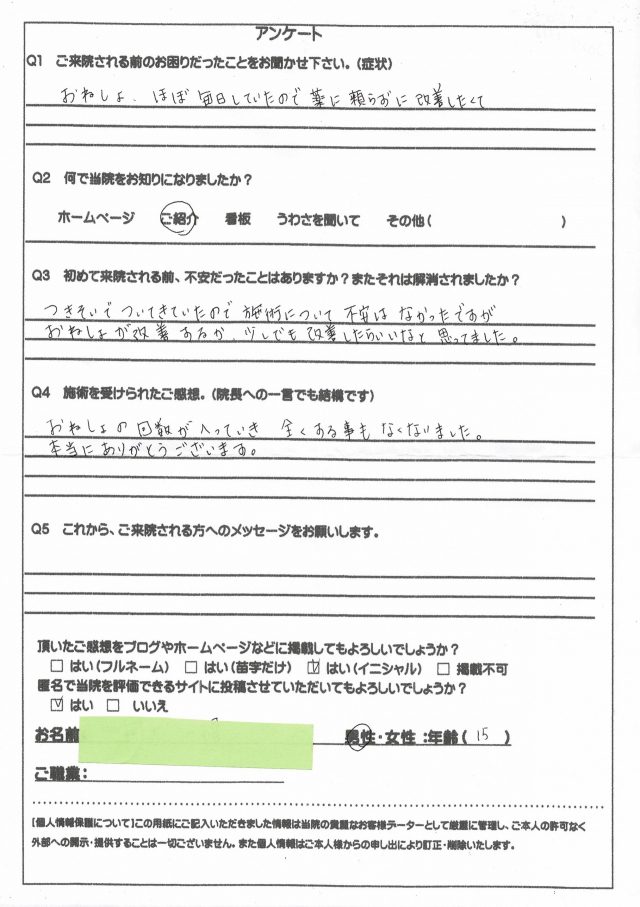 アンケート
Q1 ご来院される前のお困りだったことをお聞かせ下さい。(症状)
おねしょ、ほぼ毎日していたので薬に頼らずに改善したくて
Q2 何で当院をお知りになりましたか?
ホームページ ご紹介 看板 うわさを聞いて その他( )
Q3 初めて来院される前、不安だったことはありますか?またそれは解消されましたか?
つきそいでついてきていたので施術について不安はなかったですが
おねしょが改善するか、少しでも改善したらいいなと思ってました。
Q4 施術を受けられたご感想。(院長への一言でも結構です)
おねしょの回数がへっていき 全くする事もなくないました。
本当にありがとうございます。
Q5 これから、ご来院される方へのメッセージをお願いします。
頂いたご感想をブログやホームページなどに掲載してもよろしいでしょうか?
□ はい(フルネーム) □ はい(苗字だけ) ☑ はい(イニシャル) □ 掲載不可
匿名で当院を評価できるサイトに投稿させていただいてもよろしいでしょうか?
☑ はい □ いいえ
お名前 男性・女性:年齢( 15 )
ご職業:
[個人情報保護について]この用紙にご記入いただきました情報は当院の貴重なお客様データーとして厳重に管理し、ご本人の許可なく
外部への開示・提供することは一切ございません。また個人情報はご本人様からの申し出により訂正・削除いたします。